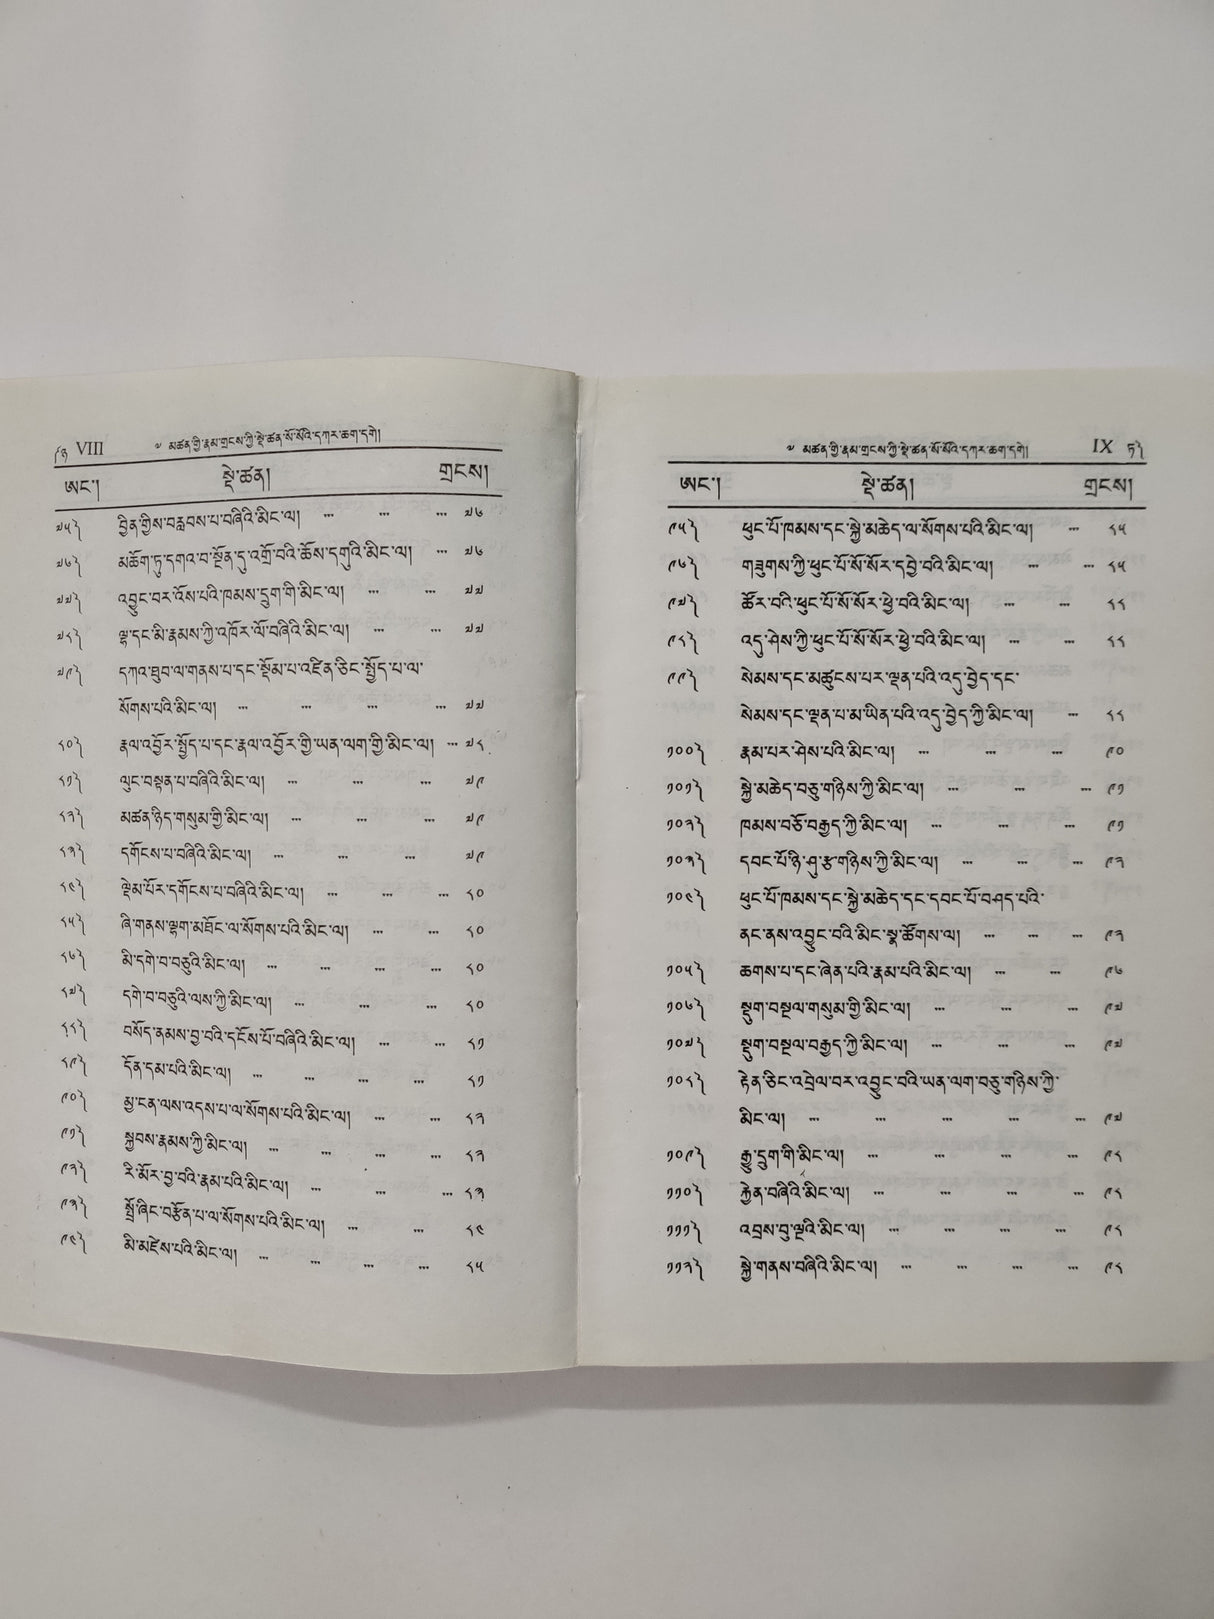 VIII ༧ མཚན་གྱི་རྣམ་གྲངས་ཀྱི་སྡེ་ཚན་སོ་སོའི་དཀར་ཆག་དགེ།
ཨང་། སྡེ་ཚན། གྲངས།
༧༥༽ བྱིན་གྱིས་བརླབས་པ་བཞིའི་མིང་ལ། ... ... ... ༧༦
༧༦༽ མཆོག་ཏུ་དགའ་བ་སྔོན་དུ་འགྲོ་བའི་ཆོས་དགུའི་མིང་ལ། ... ༧༦
༧༧༽ འབྱུང་བར་འོས་པའི་ཁམས་དྲུག་གི་མིང་ལ། ... ... ༧༧
༧༨༽ ལྷ་དང་མི་རྣམས་ཀྱི་འཁོར་ལོ་བཞིའི་མིང་ལ། ... ... ༧༧
༧༩༽ དཀའ་ཐུབ་ལ་གནས་པ་དང་སྡོམ་པ་འཛིན་ཅིང་སྤྱོད་པ་ལ་
སོགས་པའི་མིང་ལ། ... ... ... ... ༧༧
༨༠༽ རྣལ་འབྱོར་སྤྱོད་པ་དང་རྣལ་འབྱོར་གྱི་ཡན་ལག་གྱི་མིང་ལ། ... ༧༨
༨༡༽ ལུང་བསྟན་པ་བཞིའི་མིང་ལ། ... ... ... ༧༩
༨༢༽ མཚན་ཉིད་གསུམ་གྱི་མིང་ལ། ... ... ... ༧༩
༨༣༽ དགོངས་པ་བཞིའི་མིང་ལ། ... ... ... ༧༩
༨༤༽ ལྡེམ་པོར་དགོངས་པ་བཞིའི་མིང་ལ། ... ... ... ༨༠
༨༥༽ ཞི་གནས་ལྷག་མཐོང་ལ་སོགས་པའི་མིང་ལ། ... ... ༨༠
༨༦༽ མི་དགེ་བ་བཅུའི་མིང་ལ། ... ... ... ... ༨༠
༨༧༽ དགེ་བ་བཅུའི་ལས་ཀྱི་མིང་ལ། ... ... ... ༨༠
༨༨༽ བསོད་ནམས་བྱ་བའི་དངོས་པོ་བཞིའི་མིང་ལ། ... ... ༨༡
༨༩༽ དོན་དམ་པའི་མིང་ལ། ... ... ... ... ༨༡
༩༠༽ མྱ་ངན་ལས་འདས་པ་ལ་སོགས་པའི་མིང་ལ། ... ... ༨༢
༩༡༽ སྐྱབས་རྣམས་ཀྱི་མིང་ལ། ... ... ... ... ༨༢
༩༢༽ རི་མོར་བྱ་བའི་རྣམ་པའི་མིང་ལ། ... ... ... ༨༣
༩༣༽ སྤྲོ་ཞིང་བརྩོན་པ་ལ་སོགས་པའི་མིང་ལ། ... ... ༨༤
༩༤༽ མི་མཇེས་པའི་མིང་ལ། ... ... ... ... ༨༥
༧ མཚན་གྱི་རྣམ་གྲངས་ཀྱི་སྡེ་ཚན་སོ་སོའི་དཀར་ཆག་དགེ། IX ཏ༽
ཨང་། སྡེ་ཚན། གྲངས།
༩༥༽ ཕུང་པོ་ཁམས་དང་སྐྱེ་མཆེད་ལ་སོགས་པའི་མིང་ལ། ... ༨༥
༩༦༽ གཟུགས་ཀྱི་ཕུང་པོ་སོ་སོར་དབྱེ་བའི་མིང་ལ། ... ... ༨༥
༩༧༽ ཚོར་བའི་ཕུང་པོ་སོ་སོར་ཕྱེ་བའི་མིང་ལ། ... ... ༨༨
༩༨༽ འདུ་ཤེས་ཀྱི་ཕུང་པོ་སོ་སོར་ཕྱེ་བའི་མིང་ལ། ... ... ༨༨
༩༩༽ སེམས་དང་མཚུངས་པར་ལྡན་པའི་འདུ་བྱེད་དང་
སེམས་དང་ལྡན་པ་མ་ཡིན་པའི་འདུ་བྱེད་ཀྱི་མིང་ལ། ... ༨༨
༡༠༠༽ རྣམ་པར་ཤེས་པའི་མིང་ལ། ... ... ... ༩༠
༡༠༡༽ སྐྱེ་མཆེད་བཅུ་གཉིས་ཀྱི་མིང་ལ། ... ... ... ༩༡
༡༠༢༽ ཁམས་བཅོ་བརྒྱད་ཀྱི་མིང་ལ། ... ... ... ༩༡
༡༠༣༽ དབང་པོ་ཉི་ཤུ་རྩ་གཉིས་ཀྱི་མིང་ལ། ... ... ... ༩༢
༡༠༤༽ ཕུང་པོ་ཁམས་དང་སྐྱེ་མཆེད་དང་དབང་པོ་བཤད་པའི་
ནང་ནས་འབྱུང་བའི་མིང་སྣ་ཚོགས་ལ། ... ... ... ༩༢
༡༠༥༽ ཆགས་པ་དང་ཞེན་པའི་རྣམ་པའི་མིང་ལ། ... ... ༩༦
༡༠༦༽ སྡུག་བསྔལ་གསུམ་གྱི་མིང་ལ། ... ... ... ༩༧
༡༠༧༽ སྡུག་བསྔལ་བརྒྱད་ཀྱི་མིང་ལ། ... ... ... ༩༧
༡༠༨༽ རྟེན་ཅིང་འབྲེལ་བར་འབྱུང་བའི་ཡན་ལག་བཅུ་གཉིས་ཀྱི་
མིང་ལ། ... ... ... ... ... ༩༧
༡༠༩༽ རྒྱུ་དྲུག་གི་མིང་ལ། ... ... ... ... ༩༨
༡༡༠༽ རྐྱེན་བཞིའི་མིང་ལ། ... ... ... ... ༩༨
༡༡༡༽ འབྲས་བུ་ལྔའི་མིང་ལ། ... ... ... ... ༩༨
༡༡༢༽ སྐྱེ་གནས་བཞིའི་མིང་ལ། ... ... ... ... ༩༨